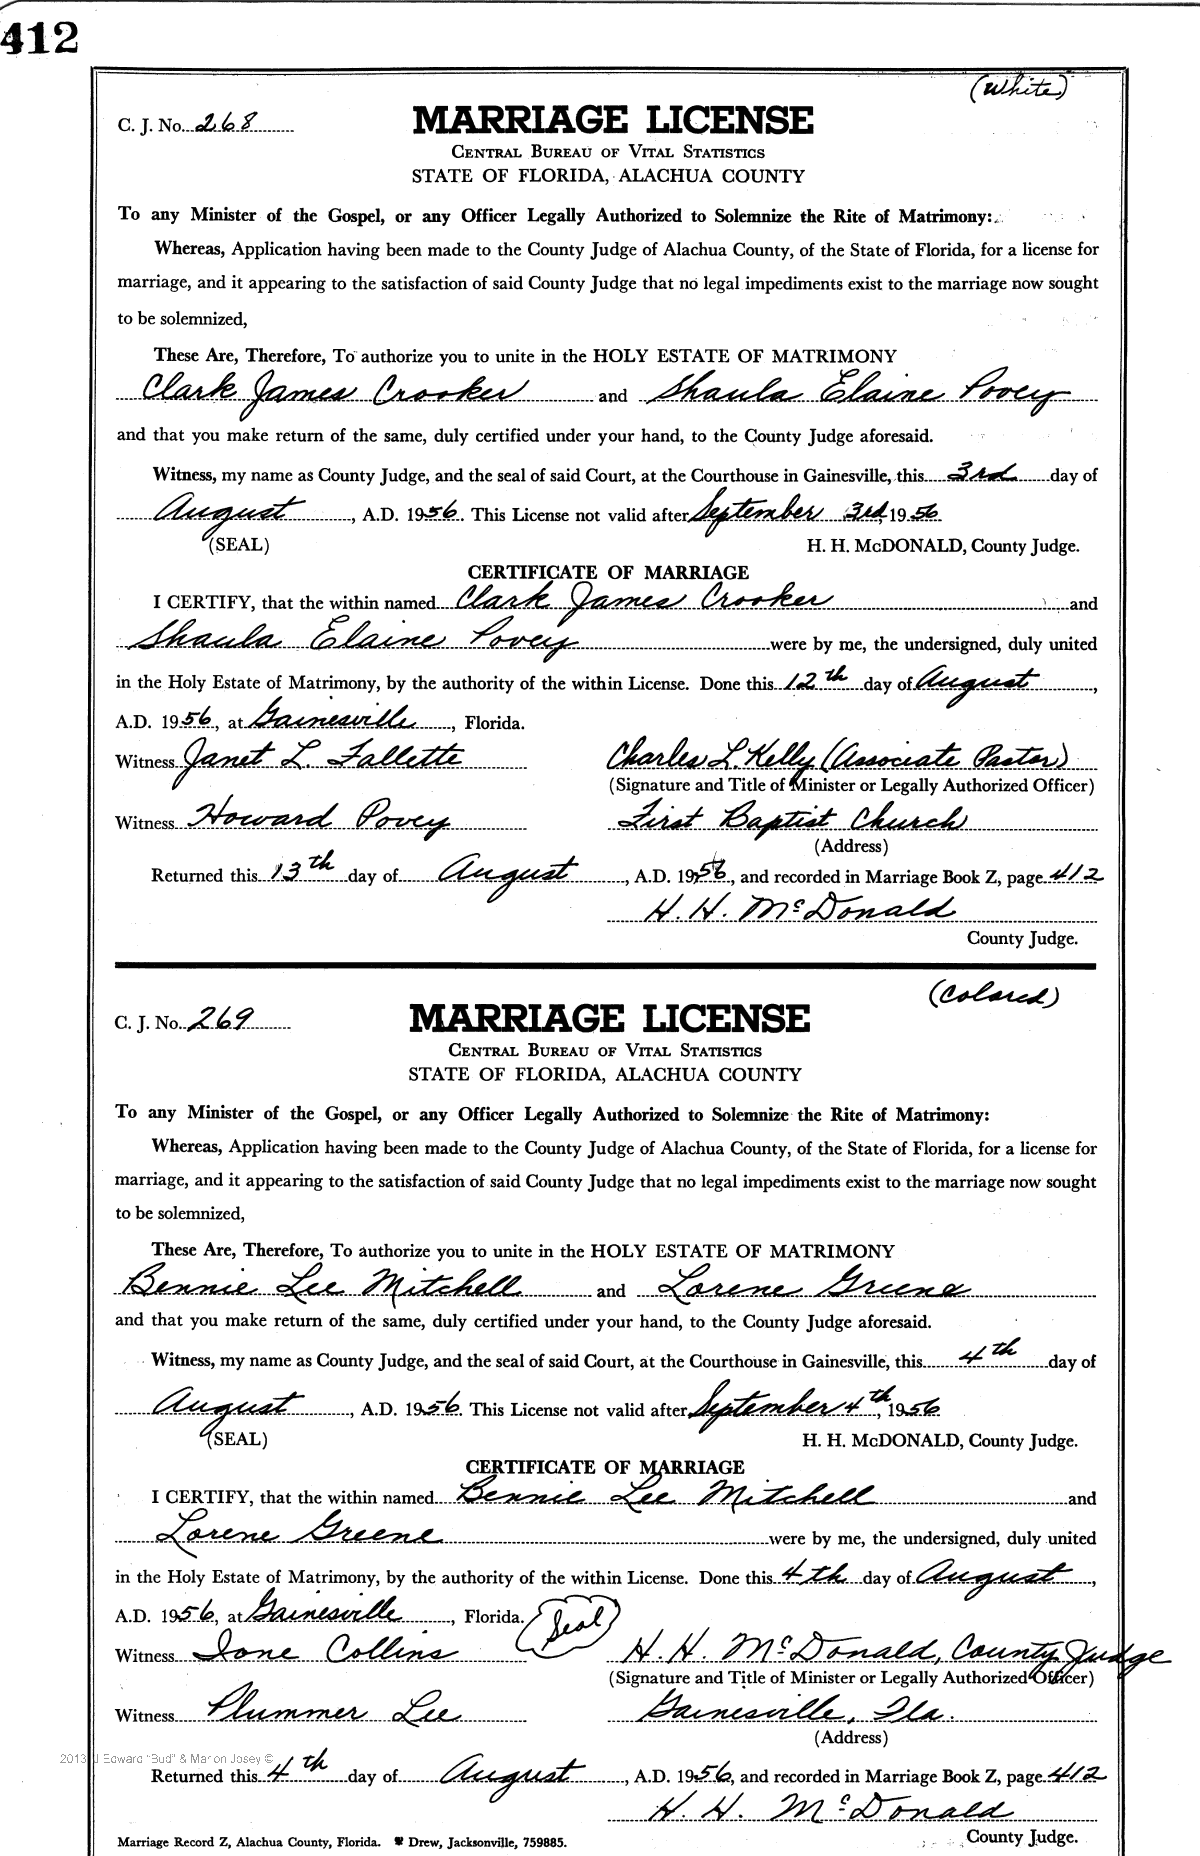 412
(White)
C. J. No. 268
MARRIAGE LICENSE
CENTRAL BUREAU OF VITAL STATISTICS
STATE OF FLORIDA, ALACHUA COUNTY
To any Minister of the Gospel, or any Officer Legally Authorized to Solemnize the Rite of Matrimony:
Whereas, Application having been made to the County Judge of Alachua County, of the State of Florida, for a license for
marriage, and it appearing to the satisfaction of said County Judge that no legal impediments exist to the marriage now sought
to be solemnized,
These Are, Therefore, To authorize you to unite in the HOLY ESTATE OF MATRIMONY
Clark James Crooker and Shaula Elaine Povey
and that you make return of the same, duly certified under your hand, to the County Judge aforesaid.
Witness, my name as County Judge, and the seal of said Court, at the Courthouse in Gainesville, this 3rd day of
August, A.D. 1956. This License not valid after September 3rd, 1956
(SEAL) H. H. McDONALD, County Judge.
CERTIFICATE OF MARRIAGE
I CERTIFY, that the within named Clark James Crooker and
Shaula Elaine Povey were by me, the undersigned, duly united
in the Holy Estate of Matrimony, by the authority of the within License. Done this 12th day of August,
A.D. 1956, at Gainesville, Florida.
Witness Janet L. Fallette Charles L. Kelly (Associate Pastor)
(Signature and Title of Minister or Legally Authorized Officer)
Witness Howard Povey First Baptist Church
(Address)
Returned this 13th day of August, A.D. 1956, and recorded in Marriage Book Z, page 412
H. H. McDonald
County Judge.
(Colored)
C. J. No. 269
MARRIAGE LICENSE
CENTRAL BUREAU OF VITAL STATISTICS
STATE OF FLORIDA, ALACHUA COUNTY
To any Minister of the Gospel, or any Officer Legally Authorized to Solemnize the Rite of Matrimony:
Whereas, Application having been made to the County Judge of Alachua County, of the State of Florida, for a license for
marriage, and it appearing to the satisfaction of said County Judge that no legal impediments exist to the marriage now sought
to be solemnized,
These Are, Therefore, To authorize you to unite in the HOLY ESTATE OF MATRIMONY
Bennie Lee Mitchell and Lorene Greene
and that you make return of the same, duly certified under your hand, to the County Judge aforesaid.
Witness, my name as County Judge, and the seal of said Court, at the Courthouse in Gainesville, this 4th day of
August, A.D. 1956. This License not valid after September 4th, 1956
(SEAL) H. H. McDONALD, County Judge.
CERTIFICATE OF MARRIAGE
I CERTIFY, that the within named Bennie Lee Mitchell and
Lorene Greene were by me, the undersigned, duly united
in the Holy Estate of Matrimony, by the authority of the within License. Done this 4th day of August,
A.D. 1956, at Gainesville, Florida. Seal
Witness Ione Collins H. H. McDonald, County Judge
(Signature and Title of Minister or Legally Authorized Officer)
Witness Plummer Lee Gainesville, Fla.
(Address)
2013 J Edward "Bud" & Marion Josey ©
Returned this 4th day of August, A.D. 1956, and recorded in Marriage Book Z, page 412
H. H. McDonald
Marriage Record Z, Alachua County, Florida. Drew, Jacksonville, 759885. County Judge.